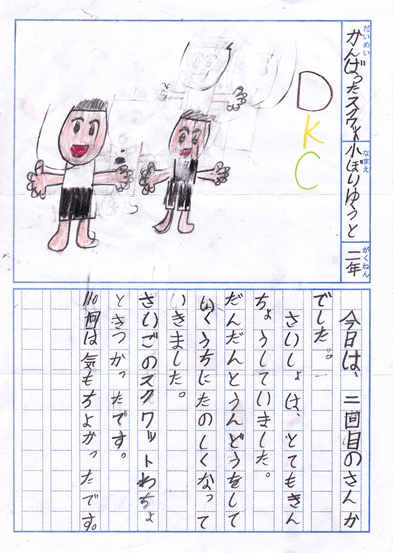 だいめい
がんばったスクワット
なまえ
小ぼりゆうと
がくねん
二年
D
K
C
今日は、二回目のさんか
でした。
さいしょは、とてもきん
ちょうしていました。
だんだんとうんどうをして
いくうちにたのしくなって
いきました。
さいごのスクワットわちょ
ときつかったです。
110回は気もちよかったです。